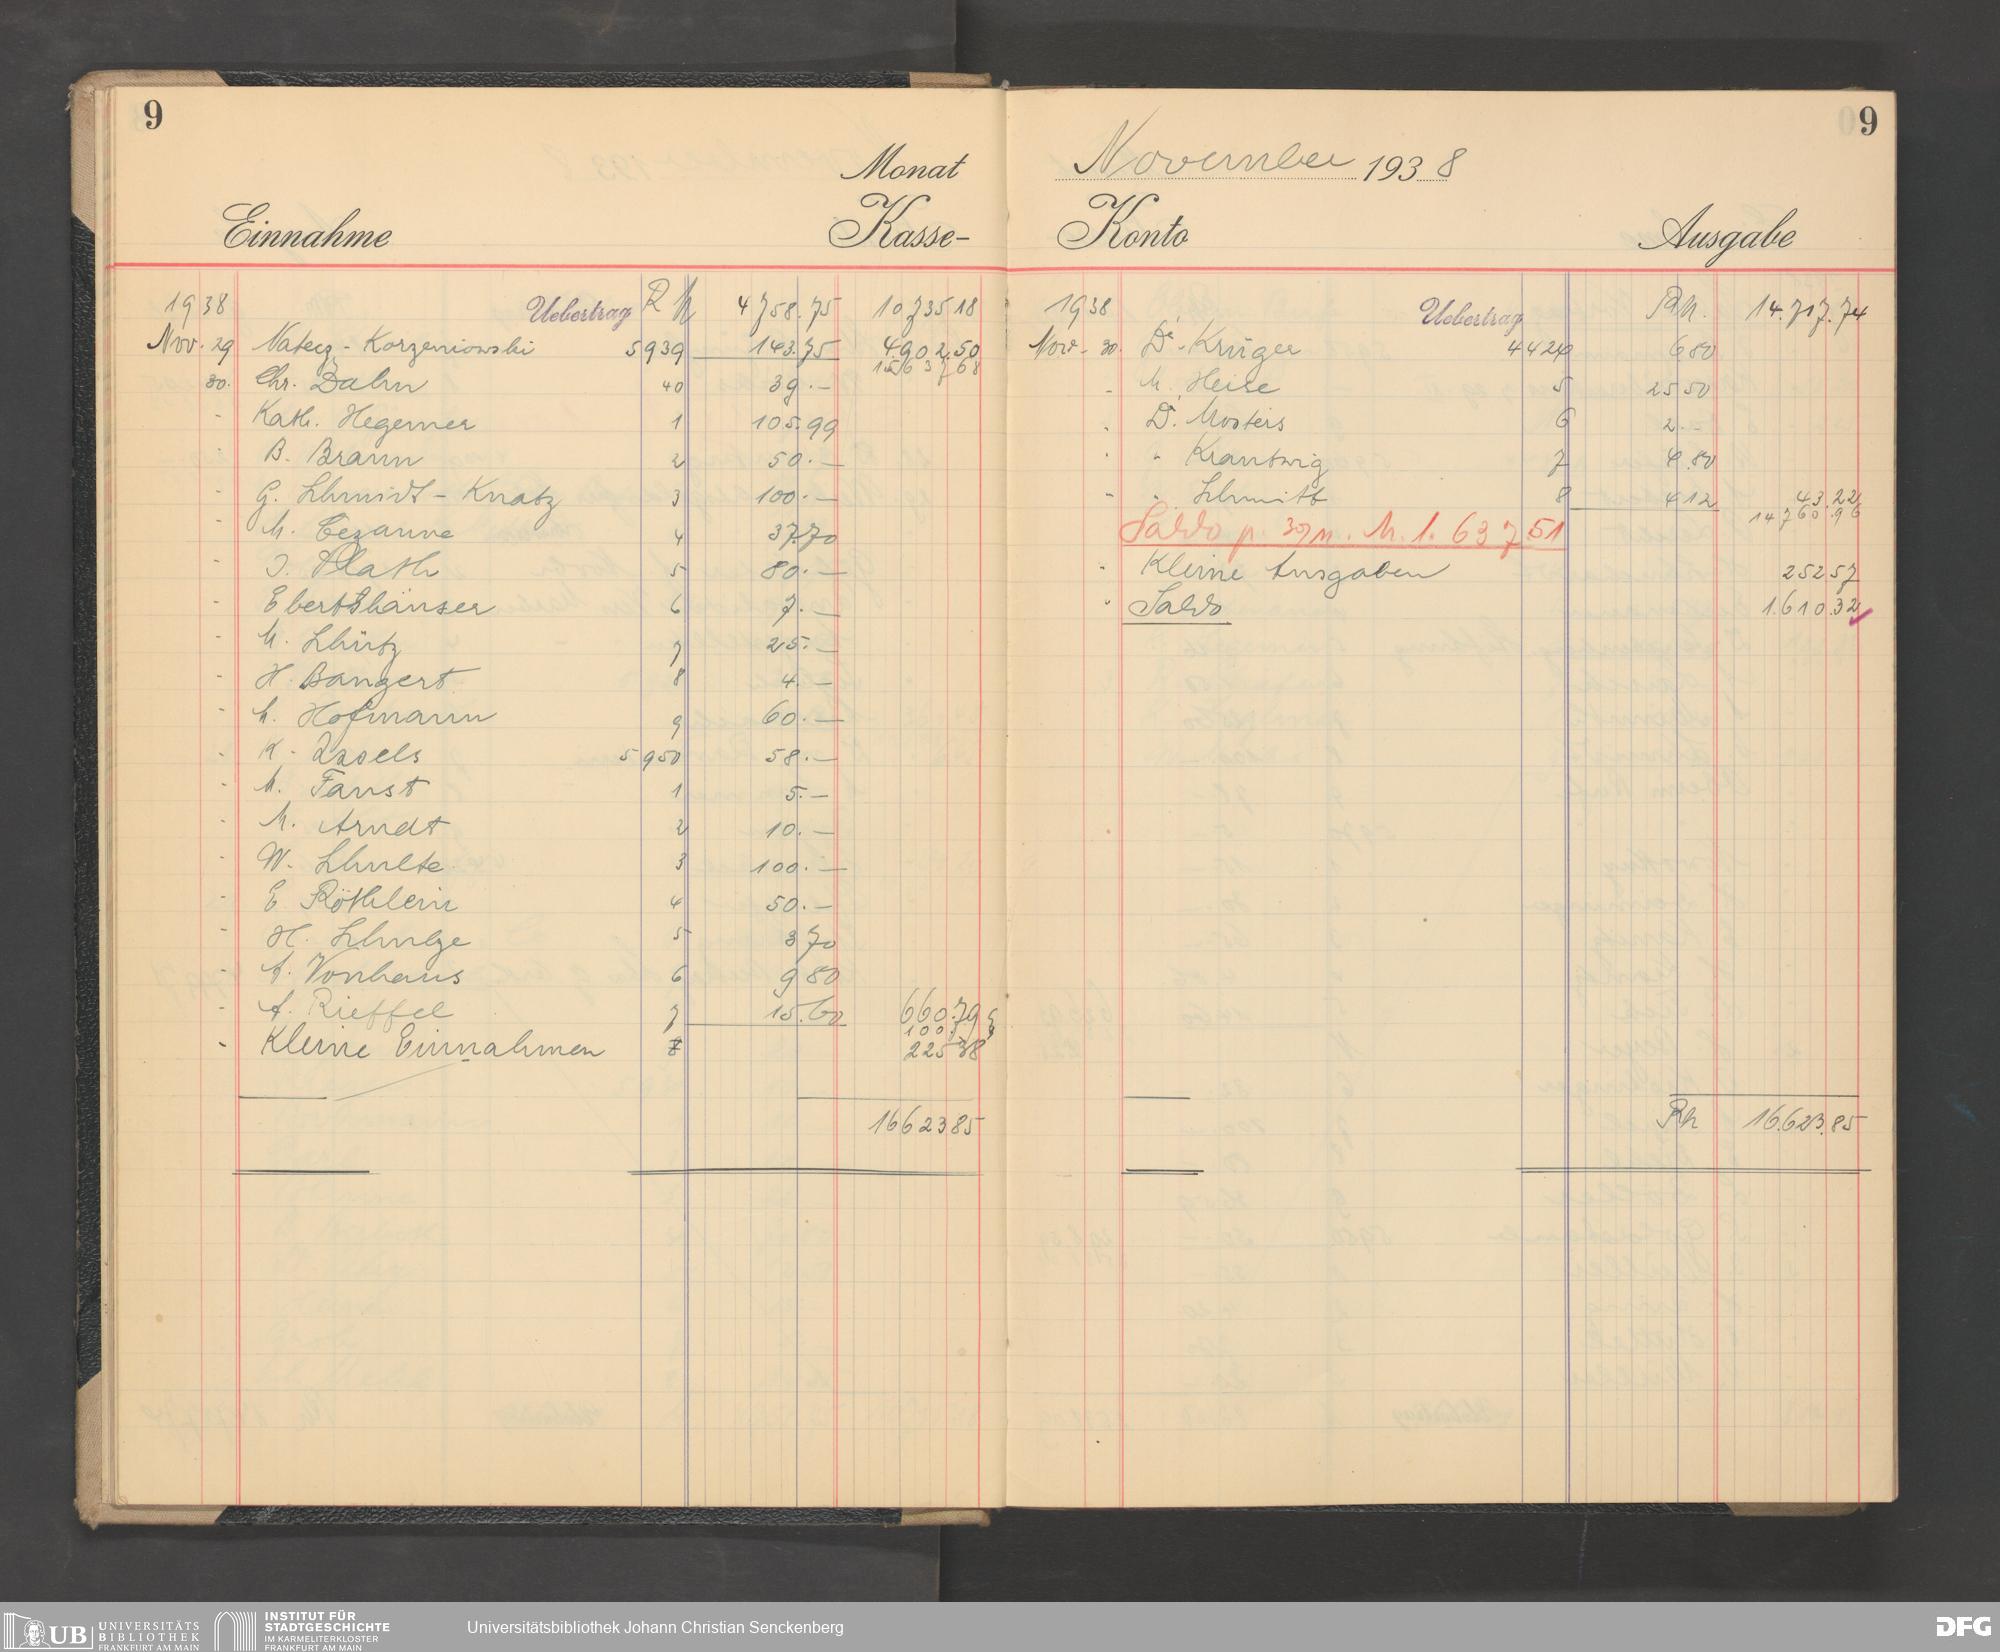 9
Monat
Einnahme
Kasse-
1938 Uebertrag RM 4758.75 10735 18
Nov. 29 Natecz-Korzeniowski 5939 143.75 4.902.50
15637 68
30. Chr. Dahn 40 39.—
- Kath. Hegemer 1 105.99
- B. Braun 2 50.—
- G. Schmidt-Knatz 3 100.—
- M. Cezanne 4 37.70
- J. Plath 5 80.—
- Ebertshäuser 6 7.—
- M. Schütz 7 25.—
- H. Bangert 8 4.—
- M. Hofmann 9 60.—
- K. Issels 5950 58.—
- M. Faust 1 5.—
- M. Arndt 2 10.—
- W. Schulte 3 100.—
- E. Röthlein 4 50.—
- H. Schulze 5 3 70
- A. Vonhaus 6 9 80
- A. Rieffel 7 15.60 660.79
- Kleine Einnahmen 8 225 38
16623 85
9
November 1938
Konto
Ausgabe
1938 Uebertrag RM. 14.717.74
Nov. 30. Dr. Krüger 4424 6 80
- M. Heise 5 25 50
- Dr. Mosters 6 2.-
- " Krantwig 7 4.80
- " Schmitt 8 4 12 43.22
14760.96
Saldo p. 30/11. M. 1.637.51
- Kleine Ausgaben 252 57
- Saldo 1.610.32
RM 16.623.85
UB UNIVERSITÄTS
BIBLIOTHEK
FRANKFURT AM MAIN
INSTITUT FÜR
STADTGESCHICHTE
IM KARMELITERKLOSTER
FRANKFURT AM MAIN
Universitätsbibliothek Johann Christian Senckenberg
DFG